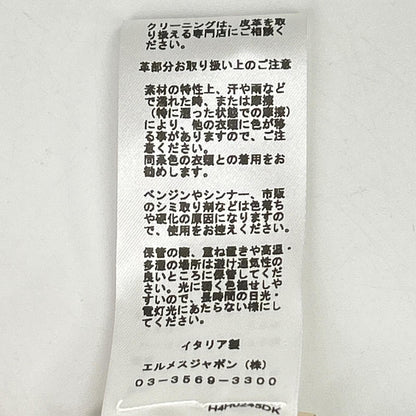 クリーニングは、皮革を取
り扱える専門店にご相談く
ださい。
革部分お取り扱い上のご注意
素材の特性上、汗や雨など
で濡れた時、または摩擦
（特に湿った状態での摩擦）
により、他の衣類に色が移
る事がありますので、ご注
意ください。
同系色の衣類との着用をお
勧めします。
ベンジンやシンナー、市販
のシミ取り剤などは色落ち
や硬化の原因になります
ので、使用をお控えください。
保管の際、重ね置きや高温・
多湿の場所は避け通気性の
良いところに保管してくだ
さい。光に弱く色褪せしや
すいので、長時間の日光・
電灯光にあたらない様にし
てください。
イタリア製
エルメスジャポン（株）
03-3569-3300
H4H0245DK